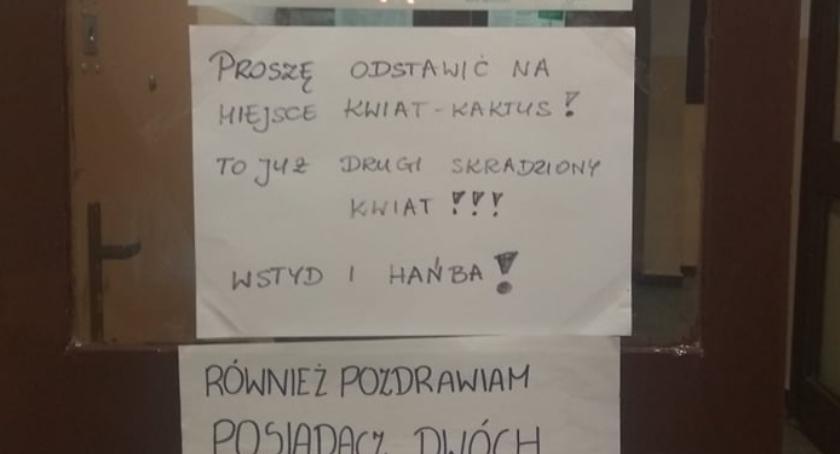 PROSZĘ ODSTAWIĆ NA
MIEJSCE KWIAT-KAKTUS!
TO JUŻ DRUGI SKRADZIONY
KWIAT!!!
WSTYD I HAŃBA!
RÓWNIEŻ POZDRAWIAM
POSIADACZ DWÓCH